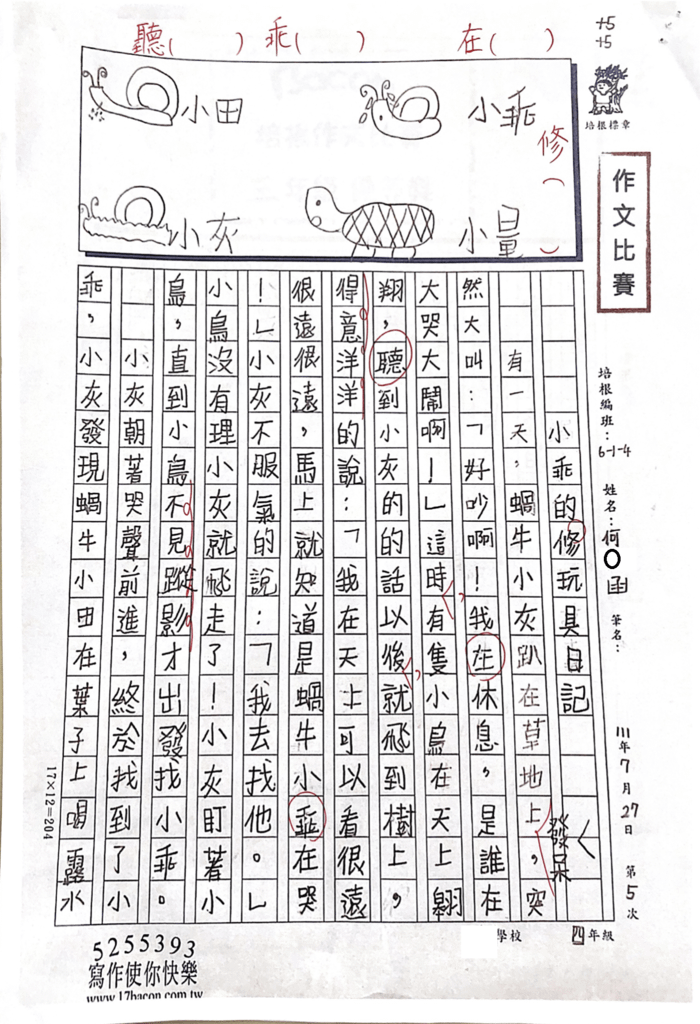 聽(　　) 乖(　　) 在(　　)
+5
+5
培根標章
小田
小乖
修(　)
小灰
小量
作文比賽
培根編班：6-1-4 姓名：何○函 筆名：
111年7月27日 第5次
學校 四年級
小乖的修玩具日記
有一天，蝸牛小灰趴在草地上，突
發呆
然大叫：「好吵啊！我在休息，是誰在
大哭大鬧啊！」這時有隻小鳥在天上翱
翔，聽到小灰的的話以後就飛到樹上，
得意洋洋的說：「我在天上可以看很遠
很遠很遠，馬上就知道是蝸牛小乖在哭
！」小灰不服氣的說：「我去找他。」
小鳥沒有理小灰就飛走了！小灰盯著小
鳥，直到小鳥不見蹤影才出發找小乖。
小灰朝著哭聲前進，終於找到了小
乖，小灰發現蝸牛小田在葉子上喝露水
17×12=204
5255393
寫作使你快樂
www.17bacon.com.tw